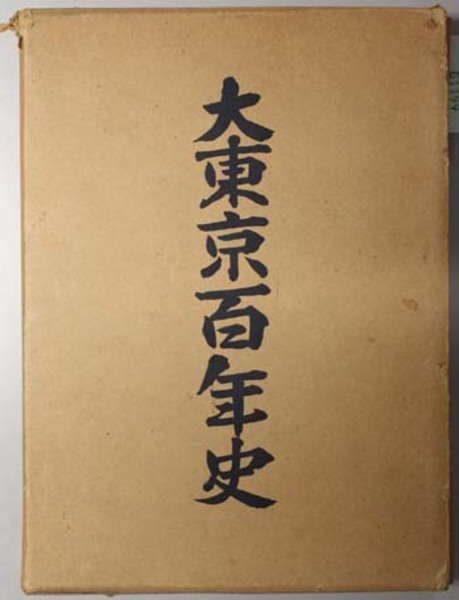 大東京百年史